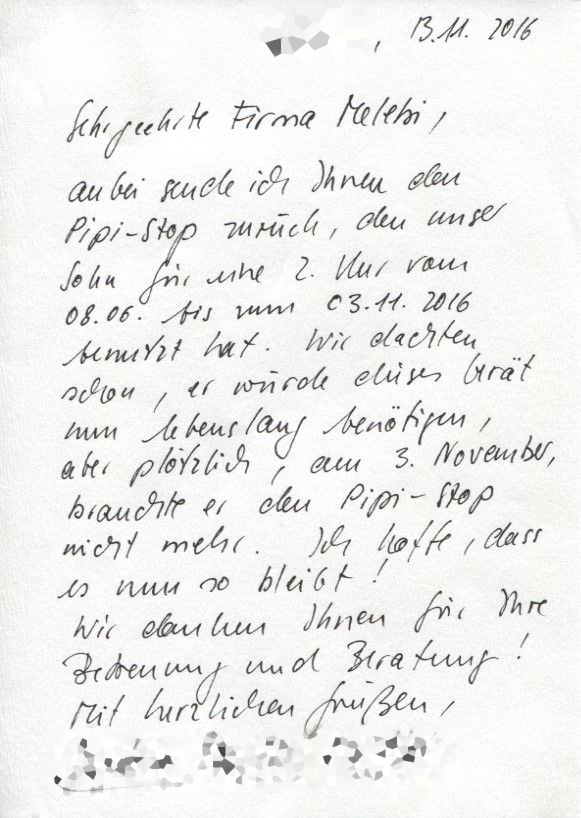 , 13.11. 2016
Sehr geehrte Firma Melebi,
anbei sende ich Ihnen den
Pipi-Stop zurück, den unser
Sohn für eine 2. Kur vom
08.06. bis zum 03.11. 2016
benutzt hat. Wir dachten
schon, er würde dieses Gerät
nun lebenslang benötigen,
aber plötzlich, am 3. November,
brauchte er den Pipi-Stop
nicht mehr. Ich hoffe, dass
es nun so bleibt!
Wir danken Ihnen für Ihre
Betreuung und Beratung!
Mit herzlichen Grüßen,